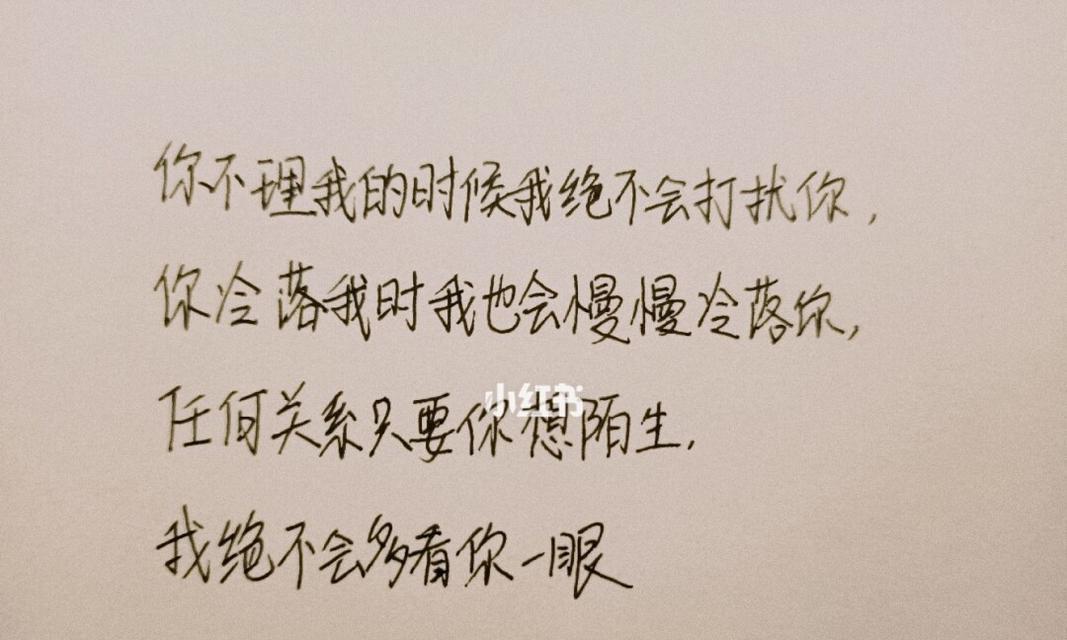 你不理我的时候我绝不会打扰你，
你冷落我时我也会慢慢冷落你，
任何关系只要你想陌生，
我绝不会多看你一眼
小红书